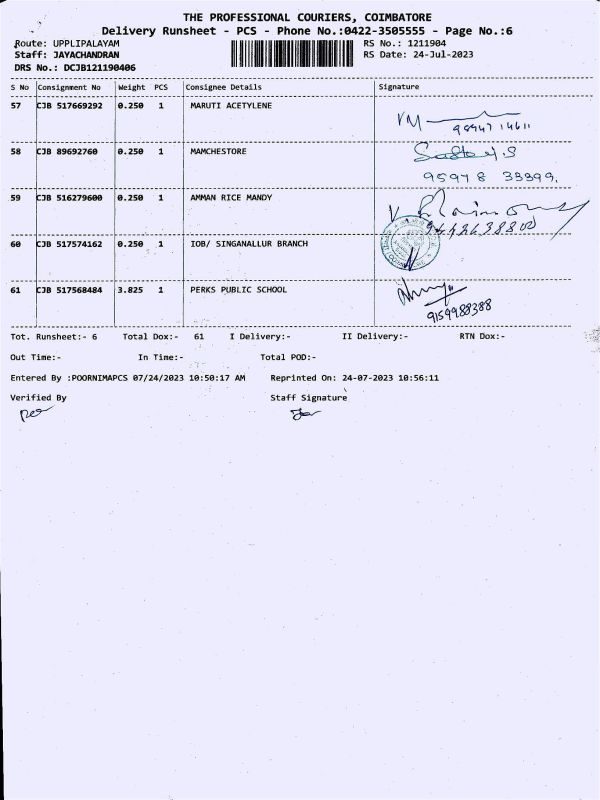 THE PROFESSIONAL COURIERS, COIMBATORE
Delivery Runsheet - PCS - Phone No.:0422-3505555 - Page No.:6
Route: UPPLIPALAYAM RS No.: 1211904
Staff: JAYACHANDRAN RS Date: 24-Jul-2023
DRS No.: DCJB121190406
S No Consignment No Weight PCS Consignee Details Signature
57 CJB 517669292 0.250 1 MARUTI ACETYLENE
58 CJB 89692760 0.250 1 MAMCHESTORE
95978 33399.
59 CJB 516279600 0.250 1 AMMAN RICE MANDY
9442638800
60 CJB 517574162 0.250 1 IOB/ SINGANALLUR BRANCH
61 CJB 517568484 3.825 1 PERKS PUBLIC SCHOOL
9159988388
Tot. Runsheet:- 6 Total Dox:- 61 I Delivery:- II Delivery:- RTN Dox:-
Out Time:- In Time:- Total POD:-
Entered By :POORNIMAPCS 07/24/2023 10:50:17 AM Reprinted On: 24-07-2023 10:56:11
Verified By Staff Signature